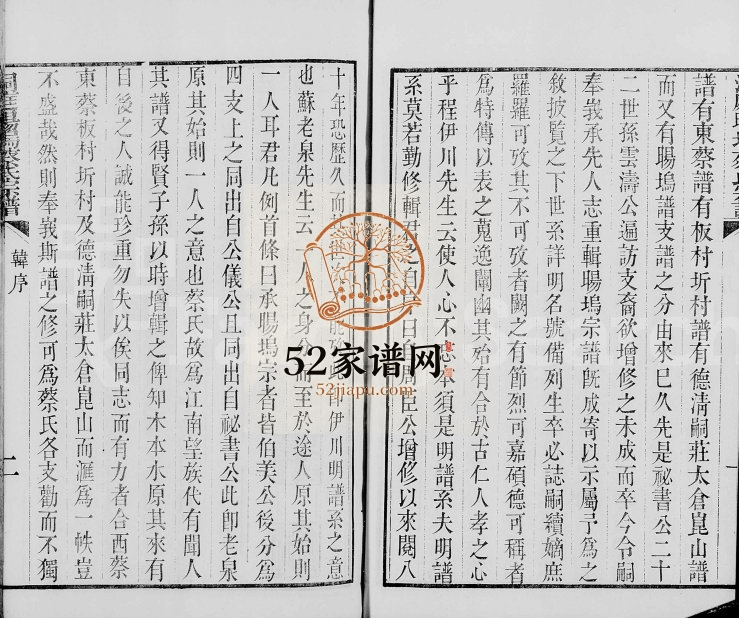 譜有東蔡譜有板村圻村譜有德清嗣莊太倉崑山譜
而又有暘塢譜支譜之分由來已久先是祕書公二十
二世孫雲濤公遍訪支裔欲增修之未成而卒今令嗣
奉義承先人志重輯暘塢宗譜旣成寄以示屬予爲之
敘披覽之下世系詳明名號備列生卒必誌嗣續嫡庶
羅羅可攷其不可攷者闕之有節烈可嘉碩德可稱者
爲特傳以表之蒐逸闡幽其殆有合於古仁人孝之心
乎程伊川先生云使人心不忘本須是明譜系夫明譜
系莫若勤修輯君之自序曰自周臣公增修以來閱八
十年恐歷久而
伊川明譜系之意
也蘇老泉先生云一人之身分而至於途人原其始則
一人耳君凡例首條曰承暘塢宗者皆伯美公後分爲
四支上之同出自公儀公且同出自祕書公此卽老泉
原其始則一人之意也蔡氏故爲江南望族代有聞人
其譜又得賢子孫以時增輯之俾知木本水原其來有
自後之人誠能珍重勿失以俟同志而有力者合西蔡
東蔡板村圻村及德淸嗣莊太倉崑山而滙爲一帙豈
不盛哉然則奉義斯譜之修可爲蔡氏各支勸而不獨
蔡氏宗譜
韓序
二
52家谱网
52jiapu.com